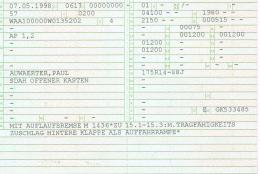 07.05.1998 0613 00000000 01 - /-
57 0200 04100 - - 1980 - -
WAA100000W0135202 4 2150 - - 000515 - -
- - 00075 - -
AP 1,2 - - 001200 001200
01200 - - -
01200 - - -
- - -
AUWAERTER,PAUL 175R14-88J
SDAH OFFENER KASTEN - -
- -
- -
- E. GK533485
MIT AUFLAUFBREMSE M 1436*ZU 15.1-15.3:M.TRAGFÄHIGKEITS
ZUSCHLAG HINTERE KLAPPE ALS AUFFAHRRAMPE*